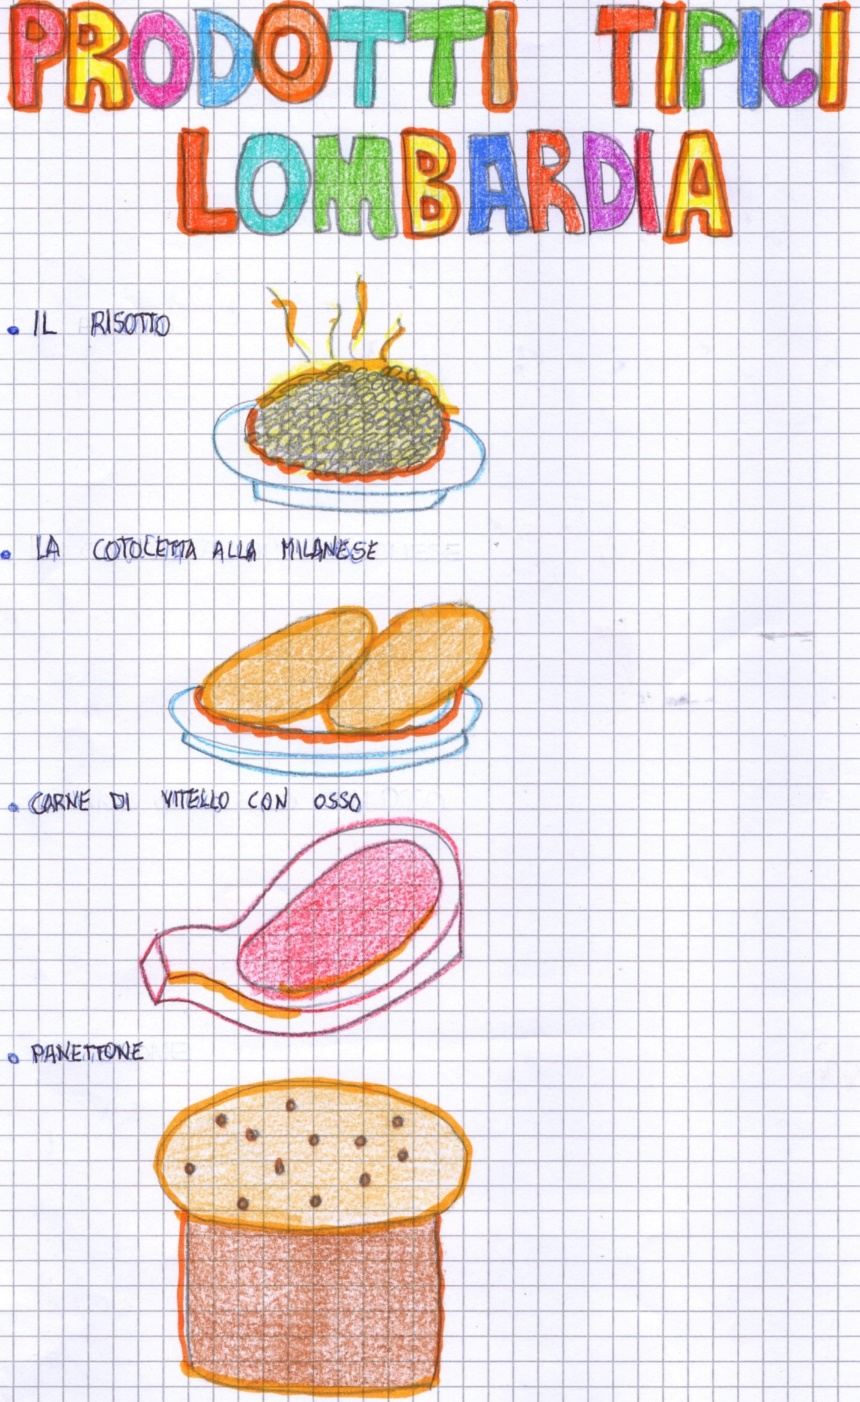 PRODOTTI TIPICI
LOMBARDIA
• IL RISOTTO
• LA COTOLETTA ALLA MILANESE
• CARNE DI VITELLO CON OSSO
• PANETTONE